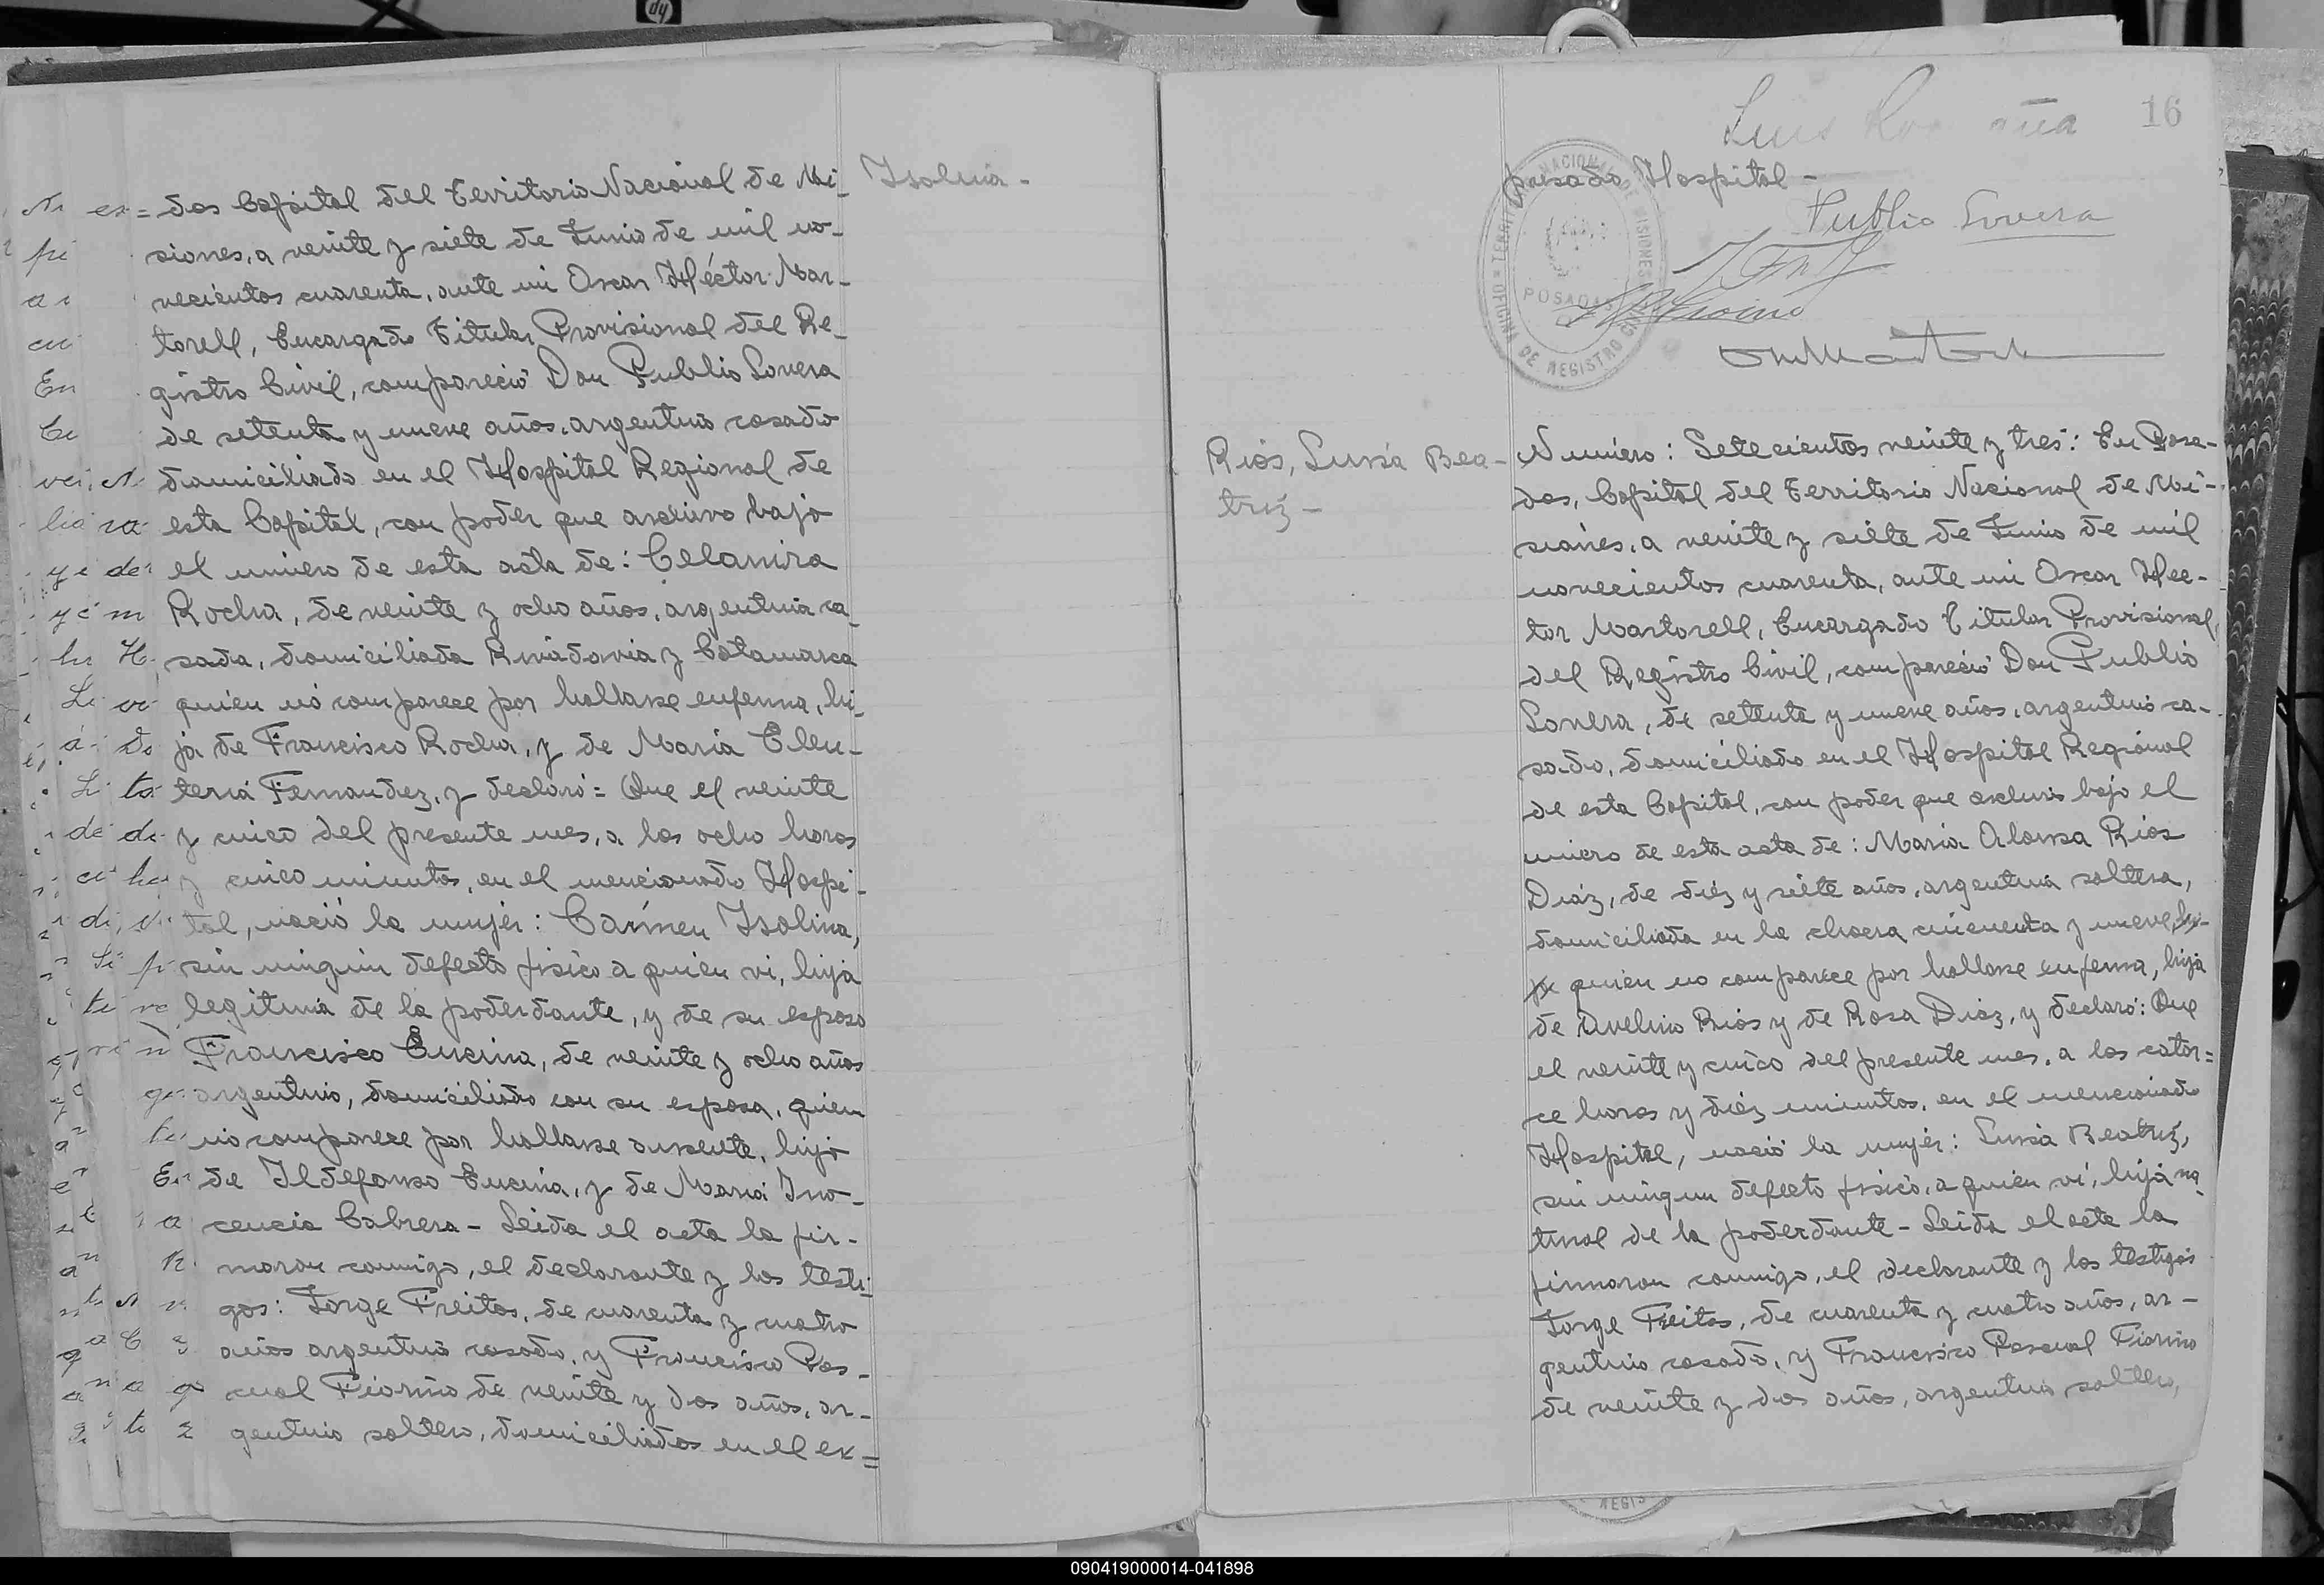 Isolina -
das Capital del Territorio Nacional de Mi-
siones, a veinte y siete de Junio de mil no-
vecientos cuarenta, ante mi Oscar Héctor Mar-
torell, Encargado Titular Provisional del Re-
gistro Civil, compareció Don Publio Lovera
de setenta y nueve años, argentino casado
domiciliado en el Hospital Regional de
esta Capital, con poder que archivo bajo
el numero de esta acta de: Celanira
Rocha, de veinte y ocho años, argentina ca-
sada, domiciliada Rivadavia y Catamarca
quien nó comparece por hallarse enferma, hi-
ja de Francisco Rocha, y de María Eleu-
teria Fernandez, y declaró= Que el veinte
y cinco del presente mes, a las ocho horas
y cinco minutos, en el mencionado Hospi-
tal, nació la mujér: Cármen Isolina,
sin ningun defecto fisico a quien vi, hija
legitima de la poderdante, y de su esposo
Francisco Encina, de veinte y ocho años
argentino, domiciliado con su esposa, quien
nó comparece por hallarse ausente, hijo
de Ildefonso Encina, y de María Ino-
cencia Cabrera - Leida el acta la fir-
maron conmigo, el declarante y los testi-
gos: Jorge Freitas, de cuarenta y cuatro
años argentino casado, y Francisco Pas-
cual Fiorino de veinte y dos años, ar-
gentino soltero, domiciliados en el ex=
16
Luis
pasado Hospital -
Publio Lovera
POSADAS
OFICINA DE REGISTRO
Rios, Luisa Bea-
triz -
Numero: Setecientos veinte y tres: En Posa-
das, Capital del Territorio Nacional de Mi-
siones, a veinte y siete de Junio de mil
novecientos cuarenta, ante mi Oscar Hec-
tor Martorell, Encargado Titular Provisional,
del Registro Civil, compareció Don Publio
Lovera, de setenta y nueve años, argentino ca-
sado, domiciliado en el Hospital Regional
de esta Capital, con poder que archivo bajo el
numero de esta acta de: Maria Alonsa Rios
Diáz, de diéz y siete años, argentina soltera,
domiciliada en la chacra cincuenta y nueve, hi-
ja quien no comparece por hallarse enferma, hija
de Avelino Rios y de Rosa Diaz, y declaró: Que
el veinte y cinco del presente mes, a las cator=
ce horas y diéz minutos, en el mencionado
Hospital, nació la mujér: Luisa Beatriz,
sin ningun defecto fisico, a quien ví, hija na-
tural de la poderdante - Leida el acta la
firmaron conmigo, el declarante y los testigos
Jorge Freitas, de cuarenta y cuatro años, ar-
gentino casado, y Francisco Pascual Fiorino
de veinte y dos años, argentino soltero,
090419000014-041898